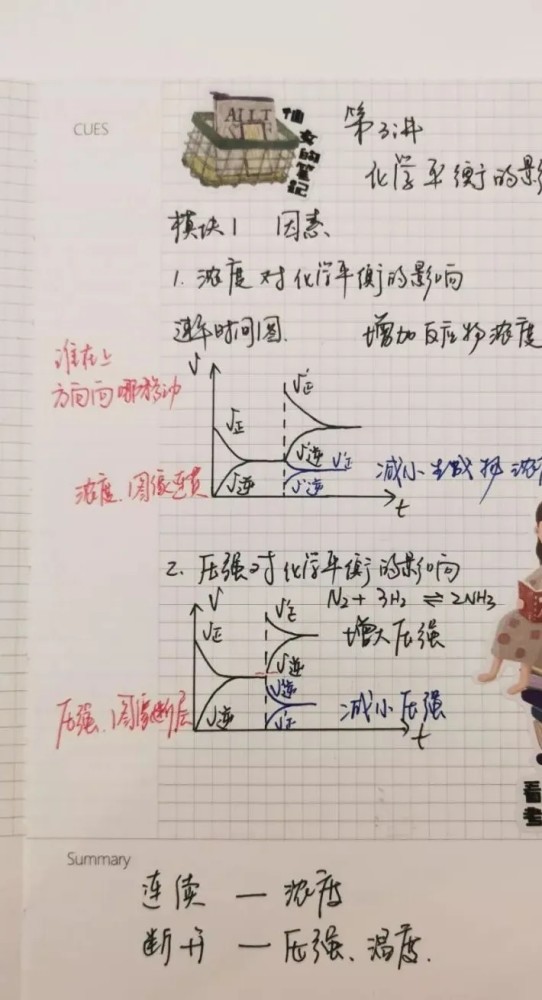 CUES
ALLT
仙女的笔记
第3讲
化学平衡的影
模块1 因素
1. 浓度对化学平衡的影响
速率时间图. 增加反应物浓度
谁在上
方向向哪移动
V
V正
V'正
V逆
V'逆
V'正
V'逆
减小生成物浓
浓度、图像连贯
t
2. 压强对化学平衡的影响
N₂ + 3H₂ ⇌ 2NH₃
V
V正
V'正
增大压强
V'逆
V逆
V'逆
V'正
减小压强
压强、图像断层
t
看
Summary
连续 — 浓度
断开 — 压强、温度.